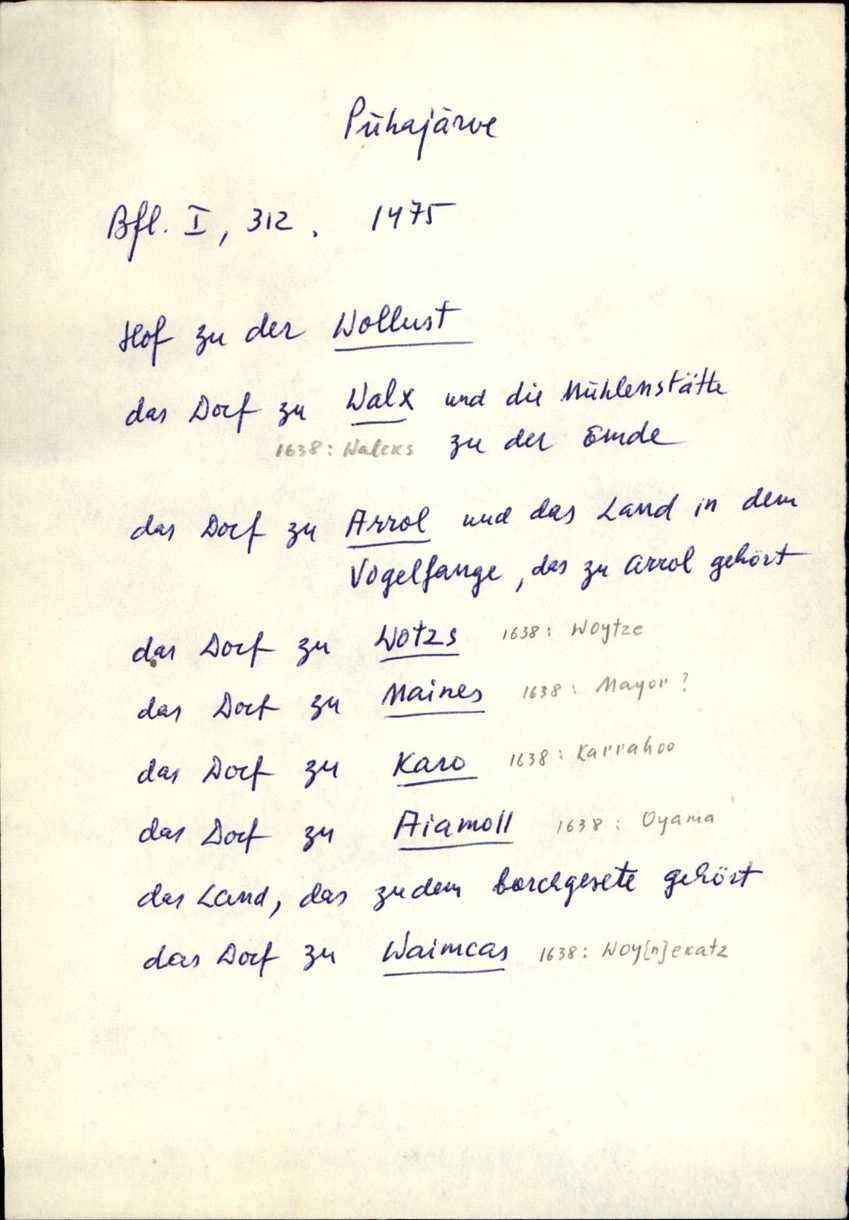 Pühajärve
Bfl. I, 312. 1475
Hof zu der Wollust
das Dorf zu Walx und die Mühlenstätte
1638: Walcks zu der Emde
das Dorf zu Arrol und das Land in dem
Vogelfange, das zu Arrol gehört
das Dorf zu Wotzs 1638: Woytze
das Dorf zu Maines 1638: Mayor?
das Dorf zu Karo 1638: Karrahoo
das Dorf zu Aiamoll 1638: Oyama
das Land, das zu dem borchgesete gehört
das Dorf zu Waimcas 1638: Woy[n]ekatz